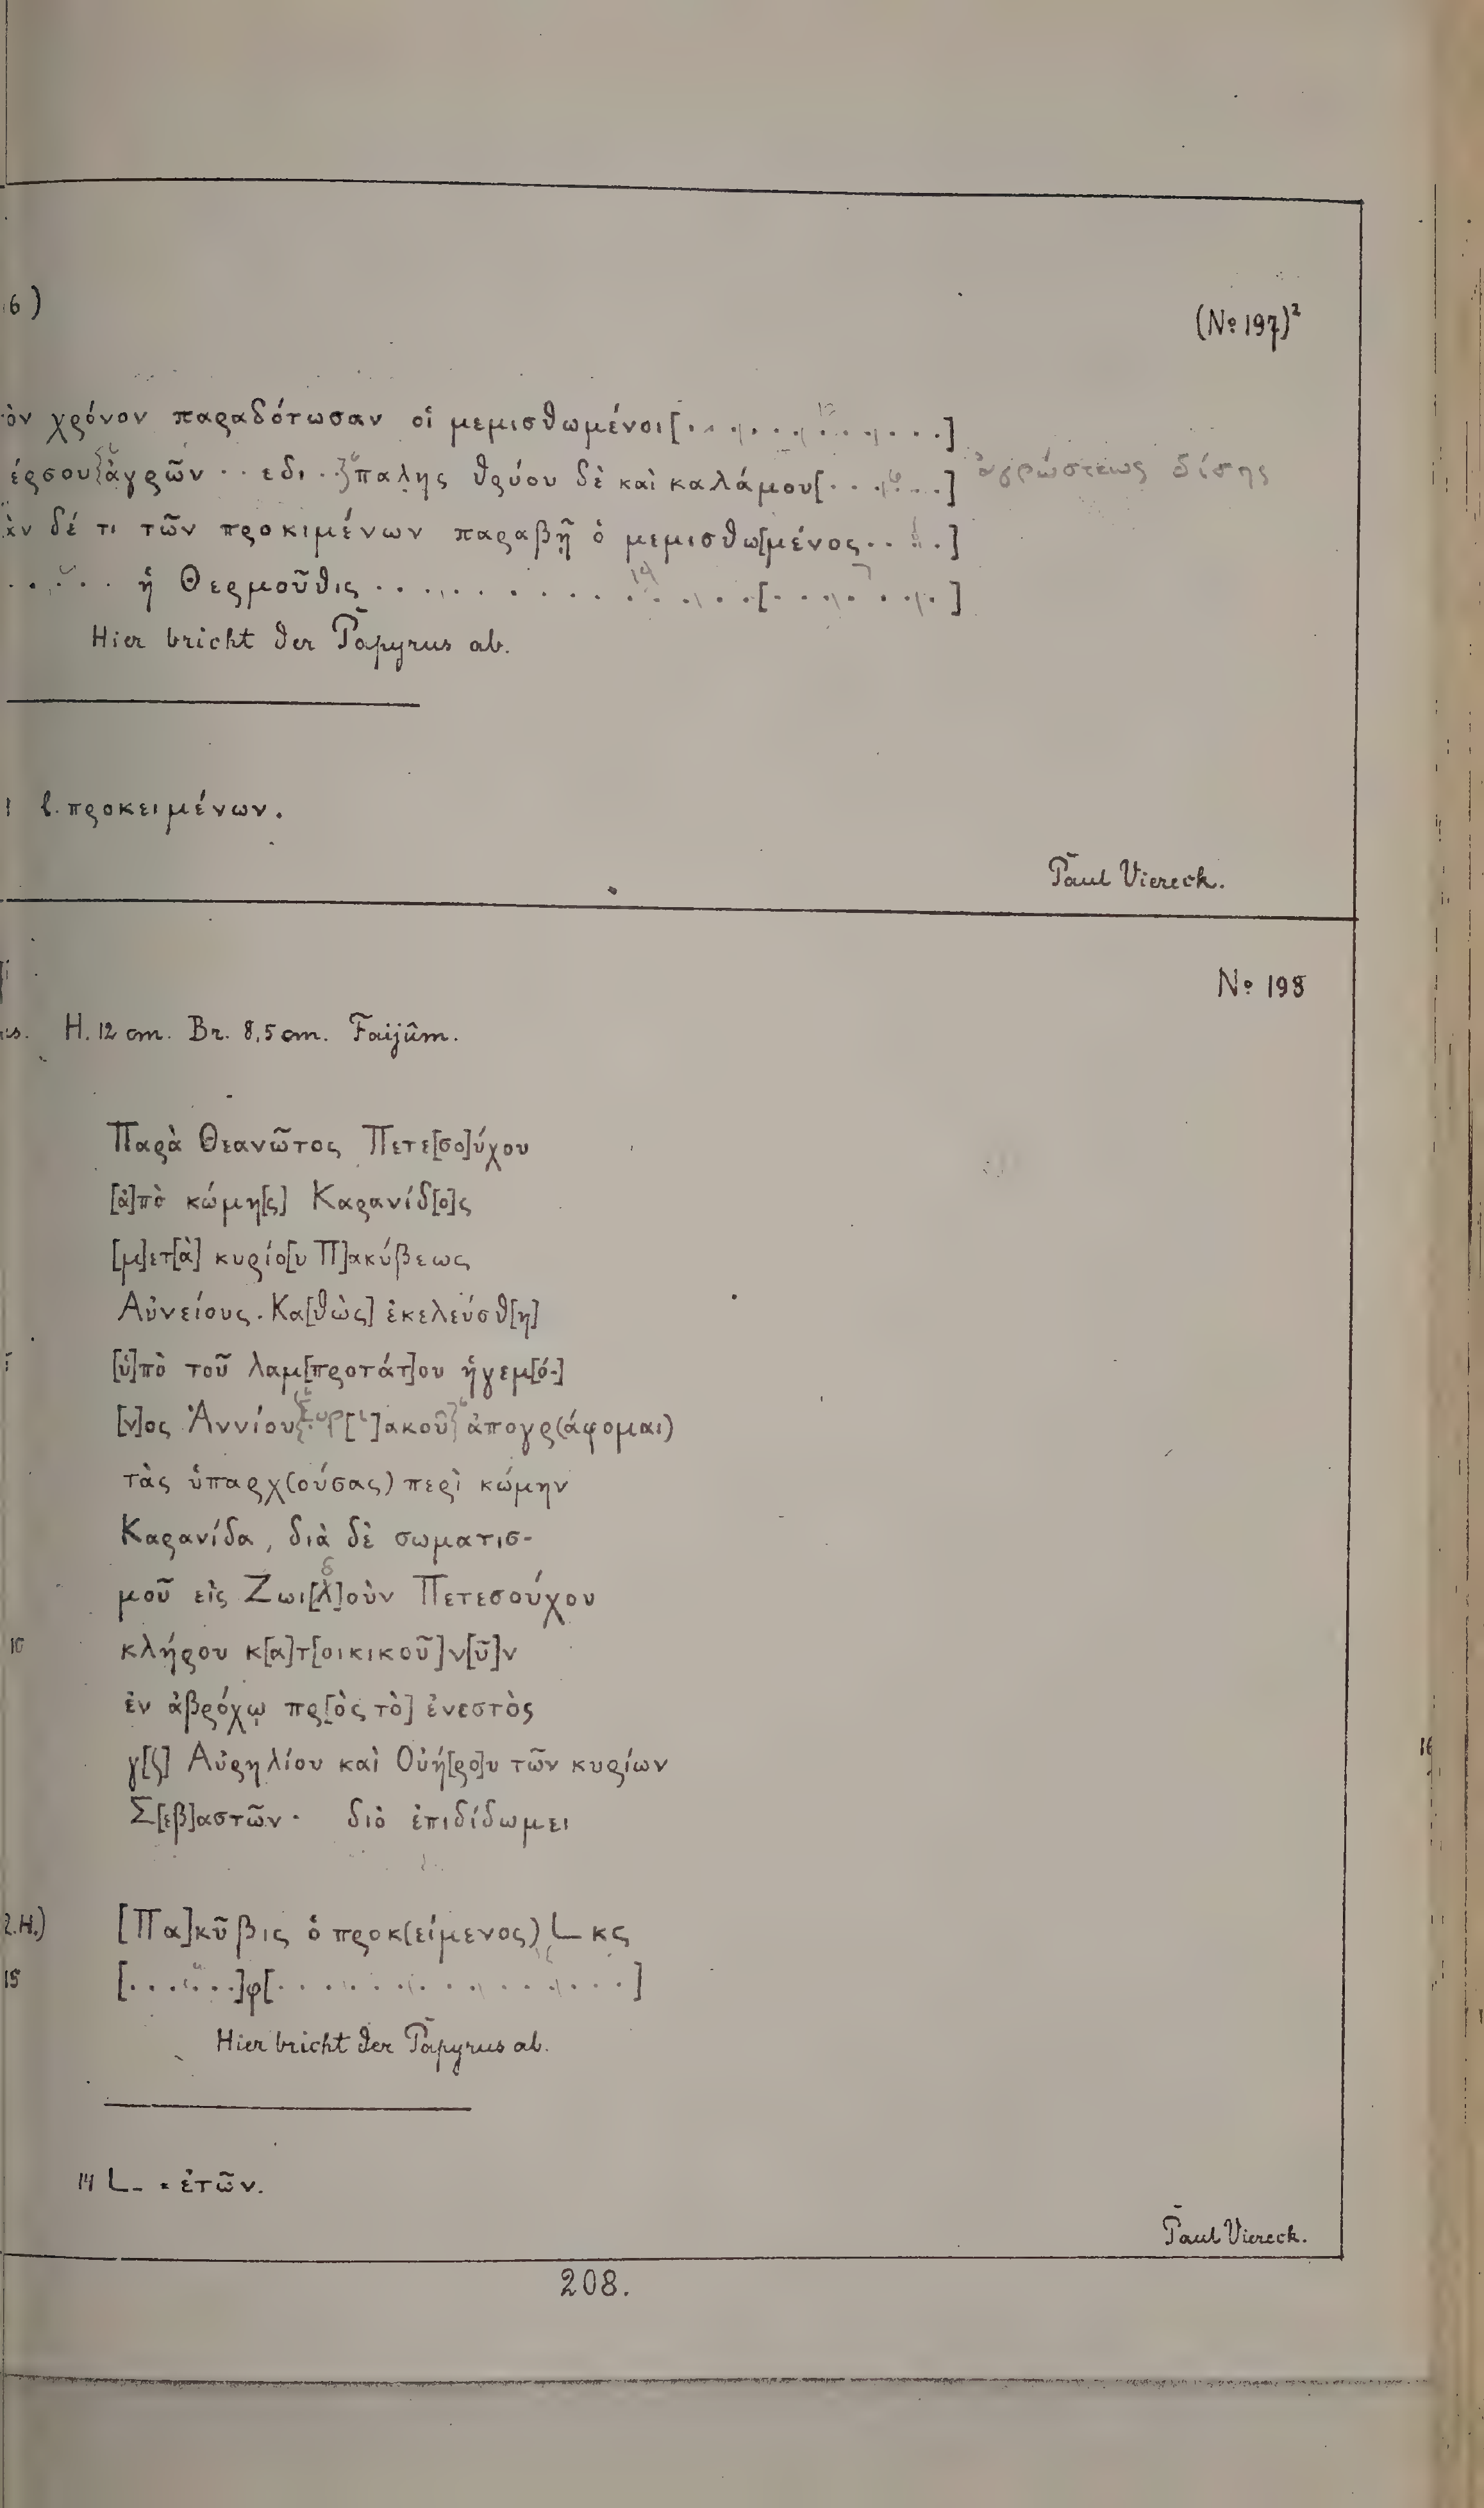 6)
(No 197)²
ὸν χρόνον παραδότωσαν οἱ μεμισθωμένοι[. . . . . . . . . . .]
έρσου ἀγρῶν . . εδι . . παλης θρύου δὲ καὶ καλάμου[. . . . . .] ἀγρώστεως δίσης
ὰν δέ τι τῶν προκιμένων παραβῇ ὁ μεμισθω[μένος . . . .]
. . . . . ἡ Θερμοῦθις . . . . . . . . . . . . . . . [. . . . . . .]
Hier bricht der Papyrus ab.
l. προκειμένων.
Paul Viereck.
No 198
H. 12 cm. Br. 8,5 cm. Faijûm.
Παρὰ Θεανῶτος Πετε[σο]ύχου
[ἀ]πὸ κώμη[ς] Καρανίδ[ο]ς
[μ]ετ[ὰ] κυρίο[υ Π]ακύβεως
Αὐνείους. Κα[θὼς] ἐκελεύσθ[η]
[ὑ]πὸ τοῦ λαμ[προτάτ]ου ἡγεμ[ό-]
[ν]ος Ἀννίου Συρ[ι]ακοῦ ἀπογρ(άφομαι)
τὰς ὑπαρχ(ούσας) περὶ κώμην
Καρανίδα, διὰ δὲ σωματισ-
δ
μοῦ εἰς Ζωι[λ]οὺν Πετεσούχου
10 κλήρου κ[α]τ[οικικοῦ] ν[ῦ]ν
ἐν ἀβρόχῳ πρ[ὸς τὸ] ἐνεστὸς
γ[ς] Αὐρηλίου καὶ Οὐή[ρο]υ τῶν κυρίων
Σ[εβ]αστῶν· διὸ ἐπιδίδωμει
2.H.) [Πα]κῦβις ὁ προκ(είμενος) L κς
15 [. . . . . .]φ[. . . . . . . . . . . . . .]
Hier bricht der Papyrus ab.
14 L = ἐτῶν.
Paul Viereck.
208.